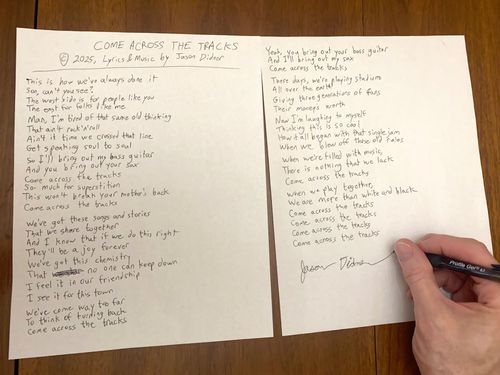 COME ACROSS THE TRACKS
© 2025, Lyrics & Music by Jason Didner
This is how we've always done it
Son, can't you see?
The west side is for people like you
The east for folks like me
Man, I'm tired of that same old thinking
That ain't rock'n'roll
Ain't it time we crossed that line
Get speaking soul to soul
So I'll bring out my bass guitar
And you bring out your sax
Come across the tracks
So much for superstition
This won't break your mother's back
Come across the tracks
We've got these songs and stories
That we share together
And I know that if we do this right
They'll be a joy forever
We've got this chemistry
That no one can keep down
I feel it in our friendship
I see it for this town
We've come way too far
To think of turning back
Come across the tracks
Yeah, you bring out your bass guitar
And I'll bring out my sax
Come across the tracks
These days, we're playing stadiums
All over the earth
Giving three generations of fans
Their money's worth
Now I'm laughing to myself
Thinking this is so cool
How it all began with that single jam
When we blew off those old rules
When we're filled with music,
There is nothing that we lack
Come across the tracks
When we play together,
We are more than white and black
Come across the tracks
Come across the tracks
Come across the tracks
Come across the tracks
Jason Didner
Profile Gel 0.7